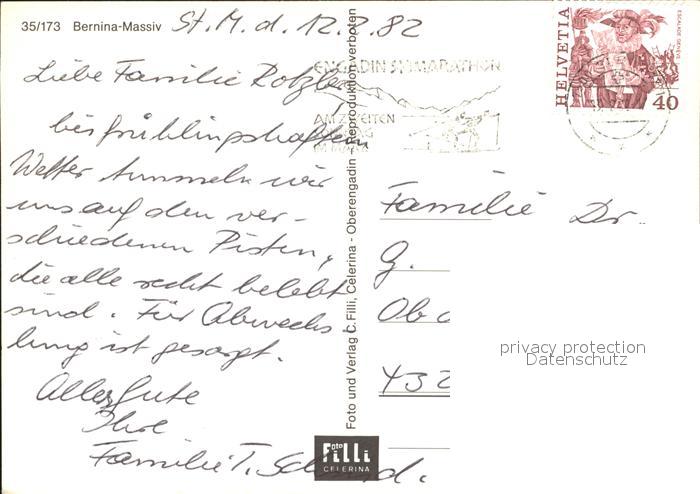 35/173 Bernina-Massiv
St. M. d. 12.2.82
Liebe Familie Rotzler
bei frühlingshaftem
Wetter tummeln wir
uns auf den ver-
schiedenen Pisten,
die alle recht belebt
sind. Für Abwechs
lung ist gesorgt.
Alles Gute
Ihre
Familie T.
Foto und Verlag C. Filli, Celerina - Oberengadin - Reproduktion verboten
Foto
Filli
CELERINA
HELVETIA
ESCALADE GENÈVE
40
ENGADIN SKIMARATHON
AM ZWEITEN
SONNTAG
IM MÄRZ
Familie Dr.
G.
Ob
432
privacy protection
Datenschutz